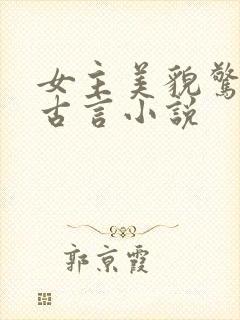 女主美貌驚
古言小說
郭京霞